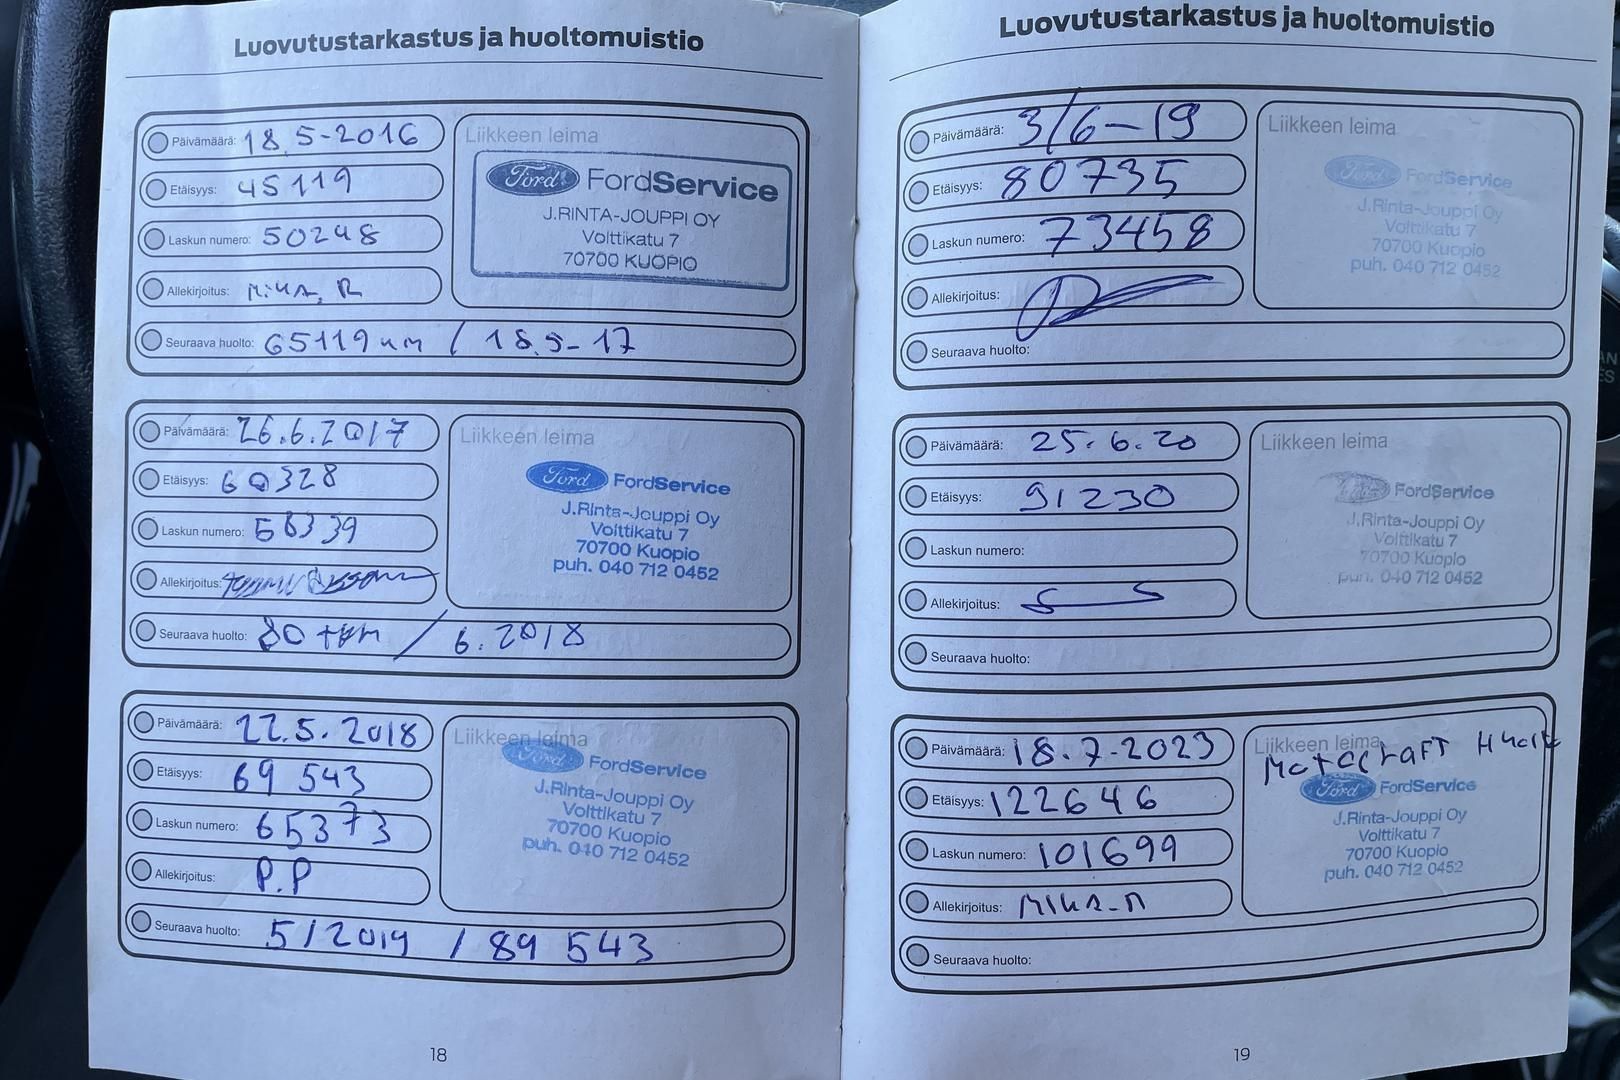 Luovutustarkastus ja huoltomuistio
Päivämäärä: 18.5-2016
Etäisyys: 45119
Laskun numero: 50248
Allekirjoitus: MiKA. R
Seuraava huolto: 65119 km / 18.5-17
Liikkeen leima
Ford FordService
J.RINTA-JOUPPI OY
Volttikatu 7
70700 KUOPIO
Päivämäärä: 26.6.2017
Etäisyys: 60328
Laskun numero: 58339
Allekirjoitus:
Seuraava huolto: 80 tkm / 6.2018
Liikkeen leima
Ford FordService
J.Rinta-Jouppi Oy
Volttikatu 7
70700 Kuopio
puh. 040 712 0452
Päivämäärä: 22.5.2018
Etäisyys: 69 543
Laskun numero: 65373
Allekirjoitus: P.P
Seuraava huolto: 5/2019 / 89 543
Liikkeen leima
Ford FordService
J.Rinta-Jouppi Oy
Volttikatu 7
70700 Kuopio
puh. 040 712 0452
18
Luovutustarkastus ja huoltomuistio
Päivämäärä: 3/6-19
Etäisyys: 80735
Laskun numero: 73458
Allekirjoitus:
Seuraava huolto:
Liikkeen leima
Ford FordService
J.Rinta-Jouppi Oy
Volttikatu 7
70700 Kuopio
puh. 040 712 0452
Päivämäärä: 25.6.20
Etäisyys: 91230
Laskun numero:
Allekirjoitus:
Seuraava huolto:
Liikkeen leima
Ford FordService
J.Rinta-Jouppi Oy
Volttikatu 7
70700 Kuopio
puh. 040 712 0452
Päivämäärä: 18.7-2023
Etäisyys: 122646
Laskun numero: 101699
Allekirjoitus: MIKA-R
Seuraava huolto:
Liikkeen leima
Motorcraft Huolto
Ford FordService
J.Rinta-Jouppi Oy
Volttikatu 7
70700 Kuopio
puh. 040 712 0452
19